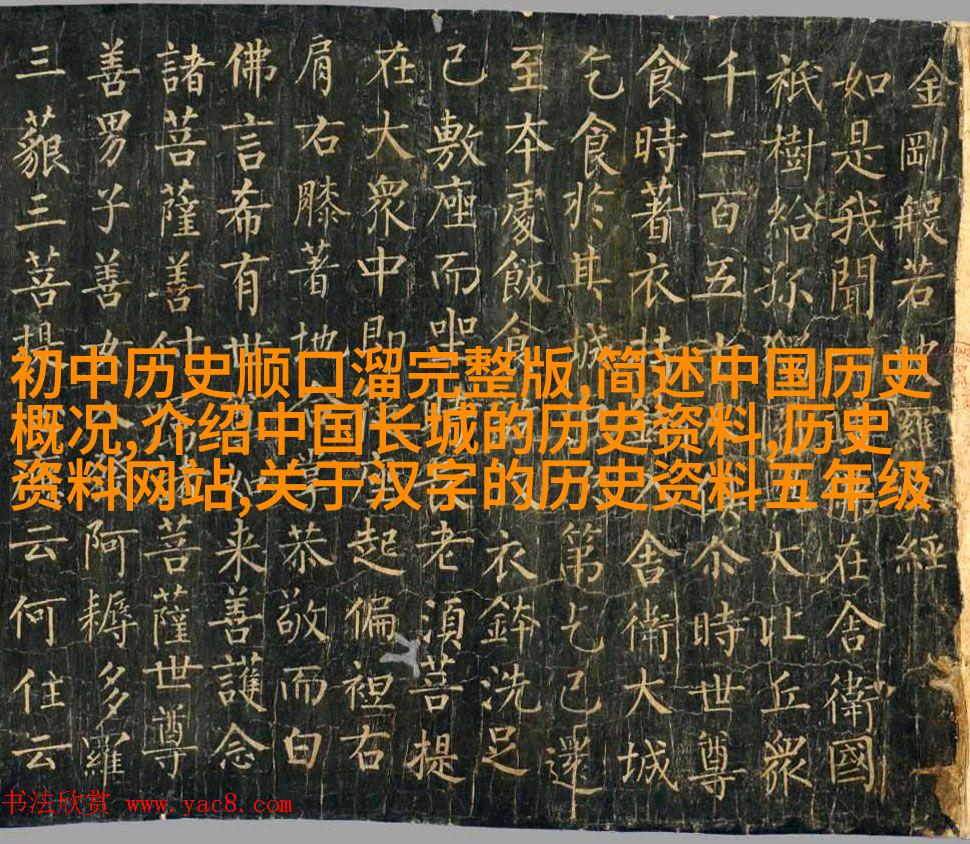 金剛般若經
如是我聞在舍衛國
祇樹給孤大比丘衆
千二百五尒時世尊
食時著衣持舍衛大城
乞食於其城第乞已還
至本處飯食衣鉢洗足
已敷座而坐老須菩提
在大衆中即起偏袒右
肩右膝著地恭敬而白
佛言希有世来善護念
諸菩薩善付菩薩世尊
善男子善女阿耨多羅
三藐三菩提云何住云
初中历史顺口溜完整版,简述中国历史
概况,介绍中国长城的历史资料,历史
资料网站,关于汉字的历史资料五年级
书法欣赏 www.yac8.com